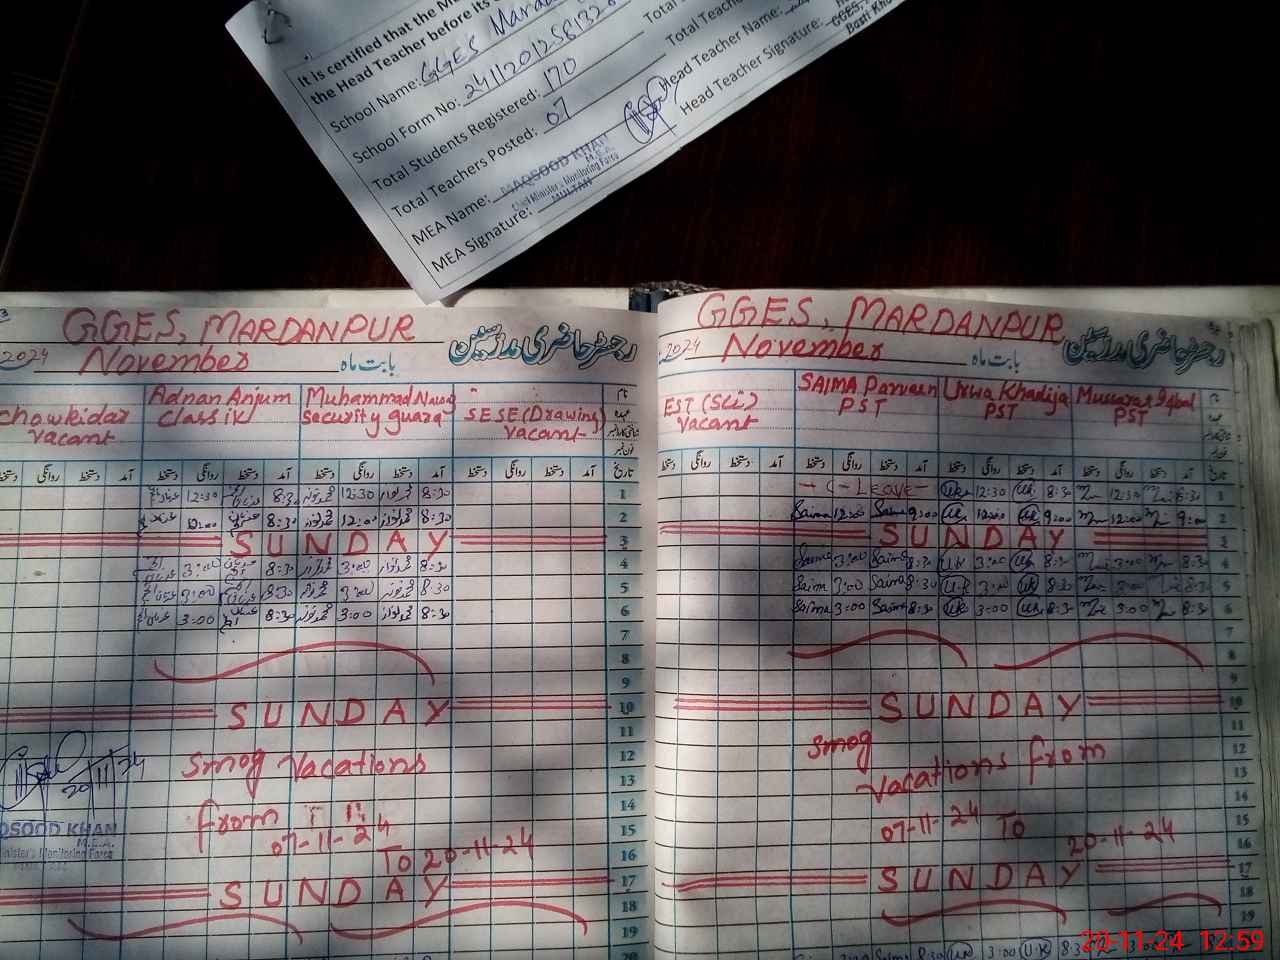 It is certified that the
the Head Teacher before its
School Name: GGES Mardan
School Form No:
Total Students Registered: 170
Total Teachers Posted: 07
MEA Name: MAQSOOD KHAN
M.E.A.
Chief Minister's Monitoring Force
MULTAN
MEA Signature:
Total
Total Teache
Head Teacher Name:
Head Teacher Signature:
GGES, MARDANPUR
رجسٹر حاضری مدرسین
2024 November بابت ماہ
Chowkidar vacant
Adnan Anjum Class iv
Muhammad Nawaz security guard
SESE (Drawing) vacant
نام
عہدہ
فون نمبر
دستخط روانگی دستخط آمد دستخط روانگی دستخط آمد دستخط روانگی دستخط آمد دستخط روانگی دستخط آمد تاریخ
12:30 8:30 12:30 8:30 1
12:00 8:30 12:00 8:30 2
SUNDAY 3
3:00 8:30 3:00 8:30 4
3:00 8:30 3:00 8:30 5
3:00 8:30 3:00 8:30 6
7
8
9
SUNDAY 10
11
smog vacations 12
13
from 14
07-11-24 15
To 20-11-24 16
SUNDAY 17
18
19
20
20/11/24
QSOOD KHAN
M.E.A.
Minister's Monitoring Force
GGES, MARDANPUR
رجسٹر حاضری مدرسین
2024 November بابت ماہ
EST (Sci) vacant
SAIMA Parveen PST
Urwa Khadija PST
Musarat Iqbal PST
نام
دستخط روانگی دستخط آمد دستخط روانگی دستخط آمد دستخط روانگی دستخط آمد دستخط روانگی دستخط آمد تاریخ
C-Leave U.K 12:30 U.K 8:30 12:30 8:30 1
Saima 12:00 Saima 9:00 U.K 12:00 U.K 9:00 12:00 9:00 2
SUNDAY 3
Saima 3:00 Saima 8:30 U.K 3:00 U.K 8:30 3:00 8:30 4
Saima 3:00 Saima 8:30 U.K 3:00 U.K 8:30 3:00 8:30 5
Saima 3:00 Saima 8:30 U.K 3:00 U.K 8:30 3:00 8:30 6
7
8
9
SUNDAY 10
11
smog 12
vacations from 13
14
07-11-24 To 15
20-11-24 16
SUNDAY 17
18
19
Saima 8:30 U.K 3:00 U.K 8:3
20-11-24 12:59